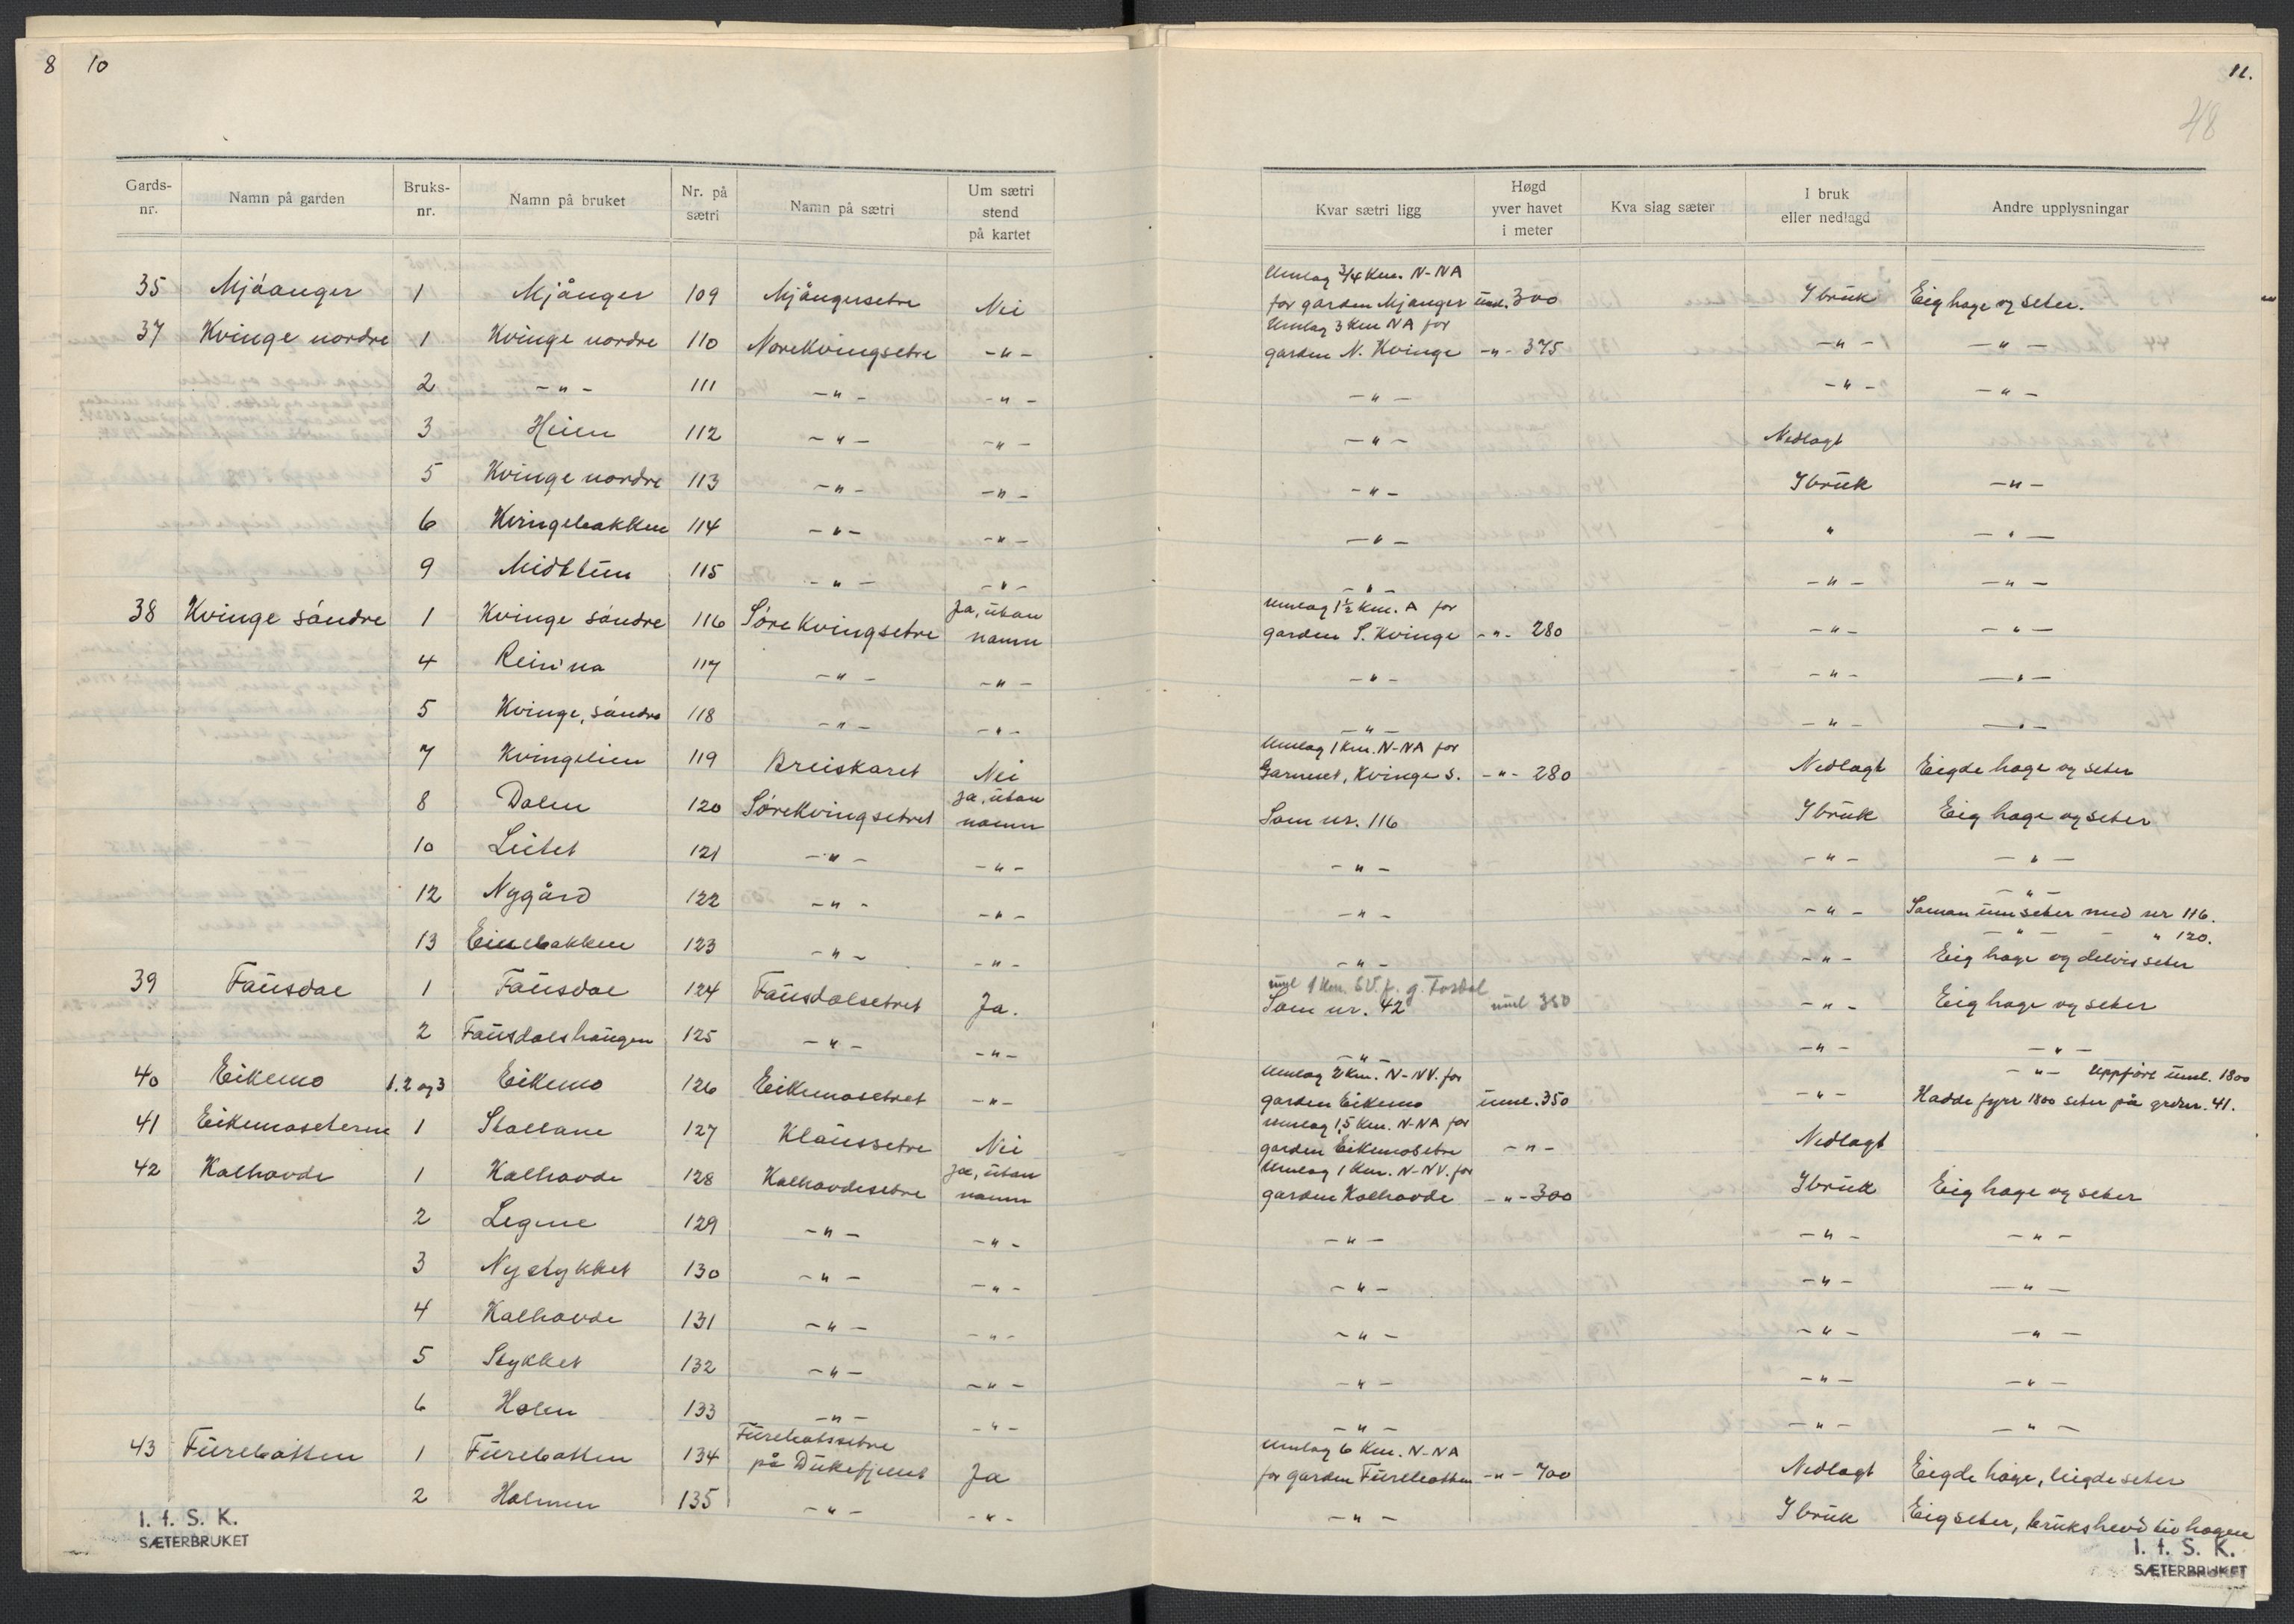 8 10
11.
48
Gards-nr. Namn på garden Bruks-nr. Namn på bruket Nr. på sætri Namn på sætri Um sætri stend på kartet Kvar sætri ligg Høgd yver havet i meter Kva slag sæter I bruk eller nedlagd Andre upplysningar
35 Mjåanger 1 Mjånger 109 Mjångersetre Nei Umlag 3/4 Km. N-NA for garden Mjanger uml. 300 I bruk Eig hage og seter.
37 Kvinge nordre 1 Kvinge nordre 110 NoreKvingsetre -"- Umlag 3 Km NA for garden N. Kvinge -"- 375 -"- -"-
2 -"- 111 -"- -"- -"- -"- -"-
3 Heien 112 -"- -"- -"- Nedlagt
5 Kvinge nordre 113 -"- -"- -"- I bruk -"-
6 Kvingebakken 114 -"- -"- -"- " -"-
9 Midttun 115 -"- -"- -"- -"- -"-
38 Kvinge söndre 1 Kvinge söndre 116 Søre Kvingsetre Ja, utan namn Umlag 1½ Km. A for garden S. Kvinge -"- 280 -"- -"-
4 Reinina 117 -"- -"- -"- -"- -"-
5 Kvinge, söndre 118 -"- -"- -"- -"- -"-
7 Kvingelien 119 Breiskaret Nei Umlag 1 Km. N-NA for Garnuset, Kvinge s. -"- 280 Nedlagt Eigde hage og seter
8 Dalen 120 SøreKvingsetret Ja, utan namn Som nr. 116 I bruk Eig hage og seter
10 Leitet 121 -"- -"- -"- -"- -"-
12 Nygård 122 -"- -"- -"- -"- -"- Saman um seter med nr 116.
13 Einebakken 123 -"- -"- -"- -"- -"- " 120. Eig hage og delvis seter
39 Fausdal 1 Fausdal 124 Fausdalsetret Ja. uml 1 Km. SV. f. g. Fosdal Som nr. 42 uml 350 -"- Eig hage og seter
2 Fausdalshaugen 125 -"- -"- -"- -"- -"-
40 Eikemo 1.2 og 3 Eikemo 126 Eikemosetret -"- Umlag 2 Km. N-NV. for garden Eikemo uml. 350 -"- -"- Uppført uml. 1800 Hadde fyrr 1800 seter på grdnr. 41.
41 Eikemoseterne 1 Stallane 127 Klaussetre Nei Umlag 1,5 Km. N-NA for garden Eikemosetre -"- Nedlagt
42 Kalhovde 1 Kalhovde 128 Kalhovdesetre Ja, utan namn Umlag 1 Km. N-NV. for garden Kalhovde -"- 300 I bruk Eig hage og seter
2 Legene 129 -"- -"- -"- -"- -"-
3 Nystykket 130 -"- -"- -"- -"- -"-
4 Kalhovde 131 -"- -"- -"- -"- -"-
5 Stykket 132 -"- -"- -"- -"- -"-
6 Holen 133 -"- -"- -"- -"- -"-
43 Furebotten 1 Furebotten 134 Furebotssetre på Dukefjellet Ja Umlag 6 Km. N-NA for garden Furebotten -"- 700 Nedlagt Eigde hage, leigde seter
2 Holmen 135 -"- -"- -"- I bruk Eig seter, brukshevd til hagen
I. f. S. K.
SÆTERBRUKET
I. f. S. K.
SÆTERBRUKET